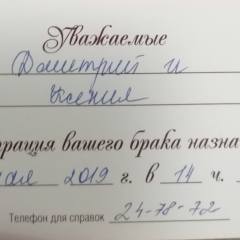 Уважаемые
Дмитрий и
Ксения
рация вашего брака назна
ая 2019 г. в 14 ч.
Телефон для справок 24-78-72